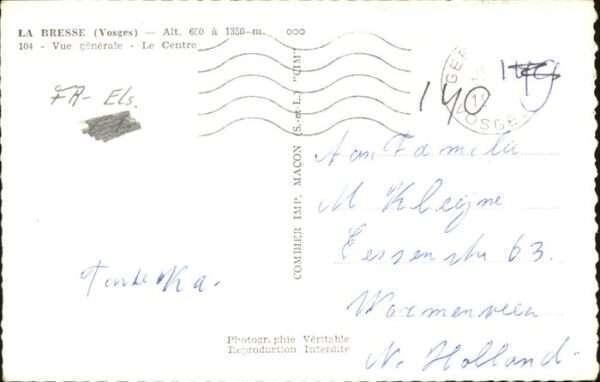 LA BRESSE (Vosges) — Alt. 600 à 1350 m. ooo
104 - Vue générale - Le Centre
FR- Els.
140
COMBIER IMP. MACON (S.-et-L.) "CIM"
Aan Familie
M Kleijne
63.
Wormerveer
N. Holland.
Tante Ka.
Photographie Véritable
Reproduction Interdite